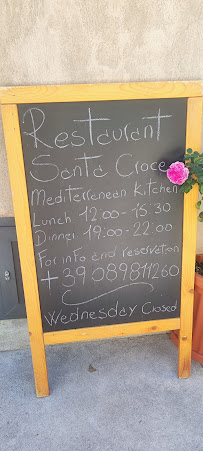 Restaurant
Santa Croce
Mediterranean Kitchen
Lunch 12:00-15:30
Dinner 19:00-22:00
For info and reservation
+39 089811260
Wednesday Closed